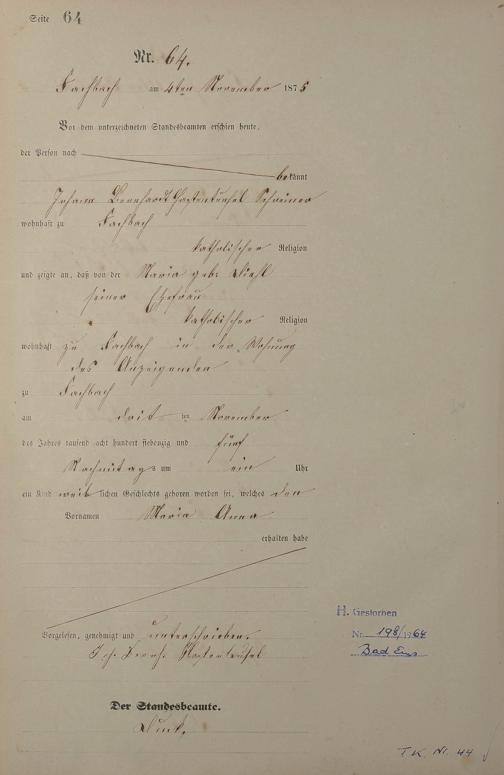 Seite 64
Nr. 64.
Fachbach am 4ten November 1875
Vor dem unterzeichneten Standesbeamten erschien heute,
der Person nach
bekannt
Johann Bernhardt Schreiner
wohnhaft zu Fachbach
katholischer Religion
und zeigte an, daß von der Maria geb. Diehl
seiner Ehefrau
katholischer Religion
wohnhaft zu Fachbach in der Wohnung
des Anzeigenden
zu Fachbach
am ten November
des Jahres tausend acht hundert siebenzig und fünf
Nachmittags um ein Uhr
ein Kind weiblichen Geschlechts geboren worden sei, welches den
Vornamen Maria Anna
erhalten habe
Vorgelesen, genehmigt und unterschrieben.
Joh. Bernh.
Der Standesbeamte.
H. Gestorben
Nr. 198/1964
Bad Ems
T.K. Nr. 44